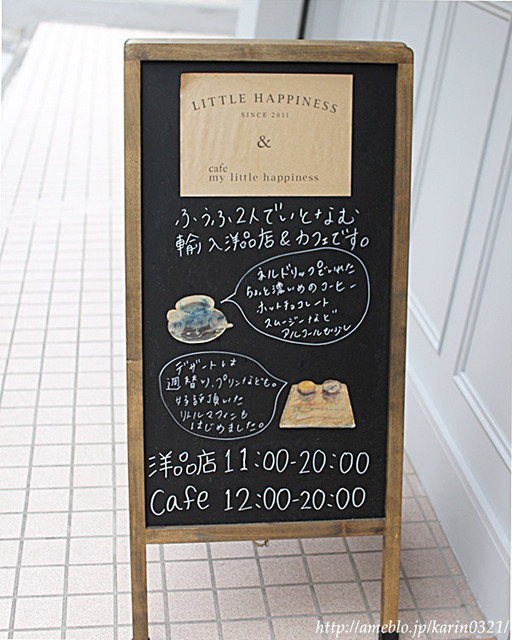 LITTLE HAPPINESS
SINCE 2011
&
cafe
my little happiness
ふうふ2人でいとなむ
輸入洋品店&カフェです。
ネルドリップでいれた
ちょっと濃いめのコーヒー
ホットチョコレート
スムージーなど
アルコールも少し
デザートは
週替り、プリンなども。
好評頂いた
リトルマフィンも
はじめました。
洋品店 11:00-20:00
Cafe 12:00-20:00
http://ameblo.jp/karin0321/